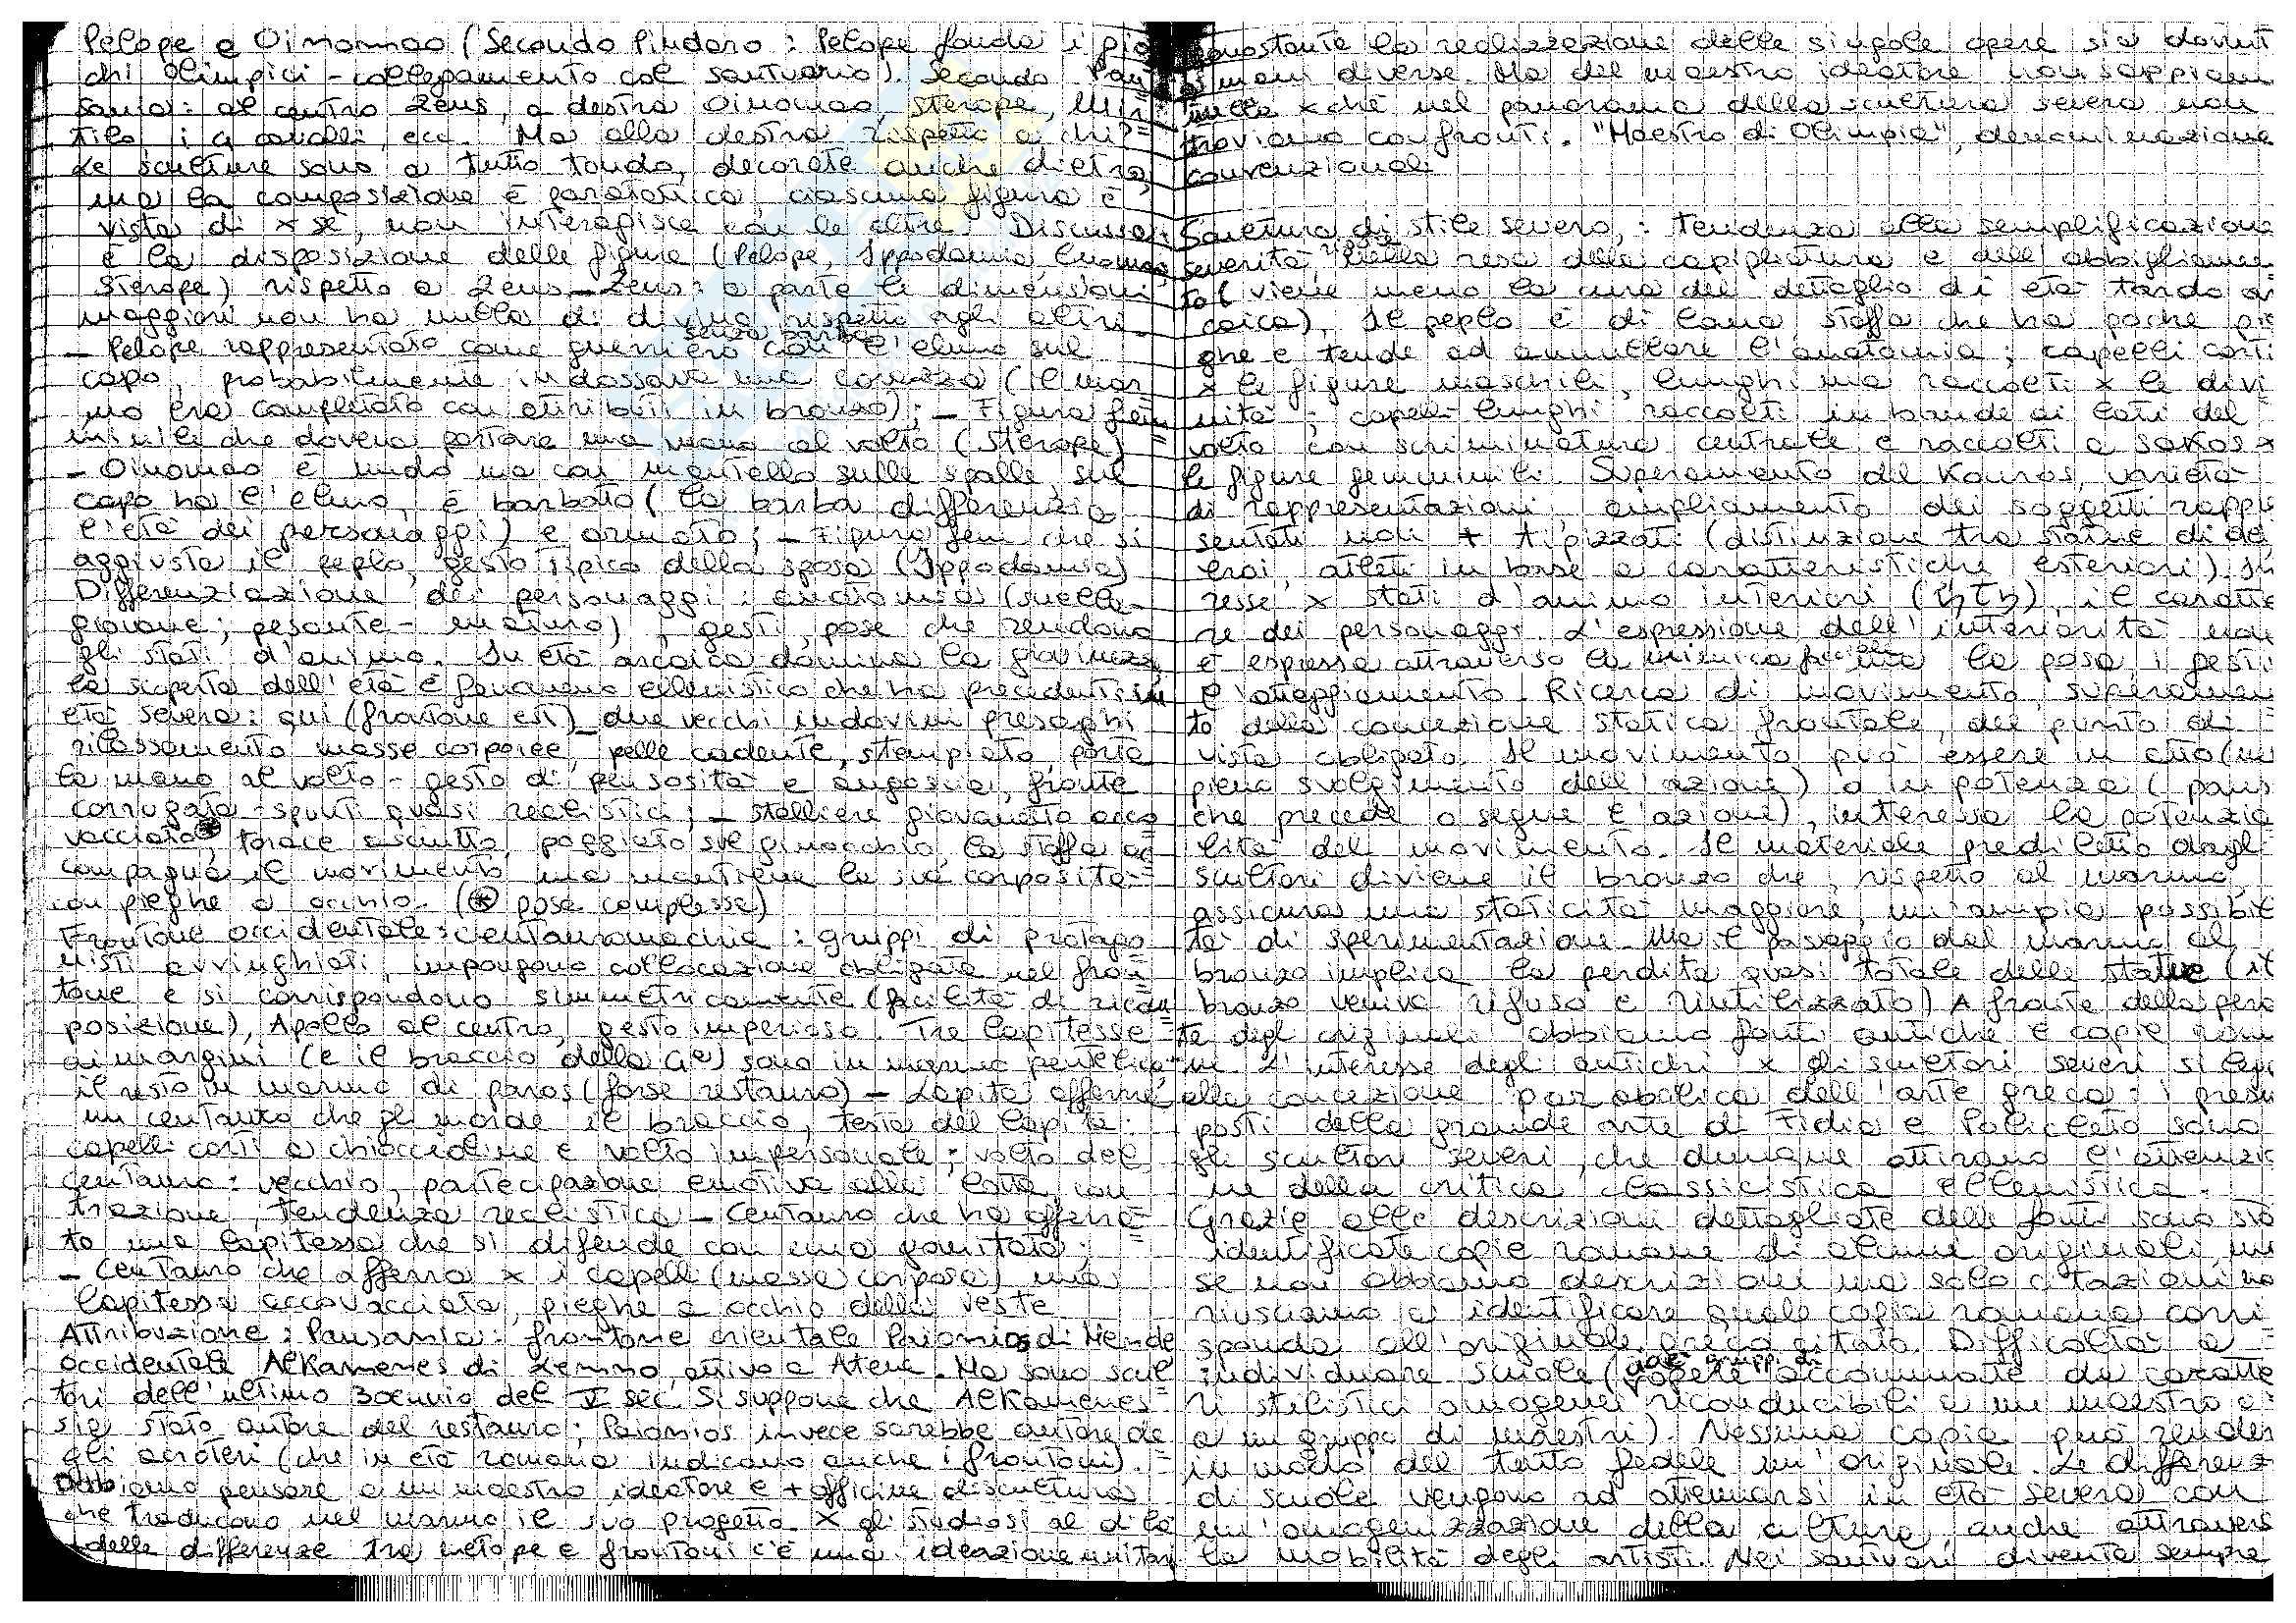 Pelope e Oinomao (Secondo Pindaro: Pelope fonda i gio
chi Olimpici - collegamento col santuario). Secondo Pau=
sania: al centro Zeus, a destra Oinomao, Sterope, Mir=
tilo, i 4 cavalli, ecc. Ma alla destra rispetto a chi?
Le sculture sono a tutto tondo, decorate anche dietro,
ma la composizione è paratattica, ciascuna figura è
vista di x sé, non interagisce con le altre. Discussa
è la disposizione delle figure (Pelope, Ippodamia, Enomao,
Sterope) rispetto a Zeus - Zeus: a parte le dimensioni
maggiori non ha nulla di divino rispetto agli altri.
- Pelope rappresentato come guerriero senza barba con l'elmo sul
capo, probabilmente indossava una corazza (il mar=
mo era completato con attributi in bronzo); - Figura fem=
minile che doveva portare una mano al volto (Sterope)
- Oinomao è nudo ma con mantello sulle spalle, sul
capo ha l'elmo, è barbato (la barba differenzia
l'età dei personaggi) e armato; - Figura fem che si
aggiusta il peplo, gesto tipico della sposa (Ippodamia)
Differenziazione dei personaggi: anatomia (snella-
giovane; pesante - maturo), gesti, pose che rendono
gli stati d'animo. In età arcaica domina la giovinezza,
la scoperta dell'età è fenomeno ellenistico che ha precedenti in
età severa: qui (frontone est) due vecchi indovini presaghi
rilassamento masse corporee, pelle cadente, stempiato, porta
la mano al volto - gesto di pensosità e angoscia, fronte
corrugata - spunti quasi realistici; - stalliere giovanetto acco
vacciato⊛, torace asciutto, poggiato sul ginocchio, la stoffa ac
compagna il movimento ma mantiene la sua corposità
con pieghe a occhio. (⊛ pose complesse)
Frontone occidentale: centauromachia: gruppi di protago
nisti avvinghiati, impongono collocazione obligata nel fron
tone e si corrispondono simmetricamente (facilità di ricom=
posizione), Apollo al centro, gesto imperioso. Tre Lapitesse
ai margini (e il braccio della 4ª) sono in marmo pentelico,
il resto in marmo di paros (forse restauro) - Lapita afferra
un centauro che gli morde il braccio, testa del Lapita:
capelli corti a chioccioline e volto impersonale; volto del
centauro: vecchio, partecipazione emotiva alla lotta, con
trazione, tendenza realistica - Centauro che ha afferra=
to una Lapitessa che si difende con una gomitata;
- Centauro che afferra x i capelli (massa corposa) una
Lapitessa accovacciata, pieghe a occhio della veste
Attribuzione: Pausania: frontone orientale Paionios di Mende
occidentale Alkamenes di Lemno, attivo a Atene. Ma sono scul=
tori dell'ultimo 30ennio del V sec. Si suppone che Alkamenes
sia stato autore del restauro; Paionios invece sarebbe autore de
gli acroteri (che in età romana indicano anche i frontoni).
Dobbiamo pensare a un maestro ideatore e + officine di scultura
che traducono nel marmo il suo progetto. X gli studiosi al di là
delle differenze tra metope e frontoni c'è una ideazione unitaria
nonostante la realizzazione delle singole opere sia dovut
a mani diverse. Ma del maestro ideatore non sappiam
nulla xchè nel panorama della scultura severa non
troviamo confronti. "Maestro di Olimpia", denominazione
convenzionali
Scultura di stile severo,: tendenza alla semplificazione
severità nella resa della capigliatura e dell'abbigliamen
to (viene meno la cura del dettaglio di età tardo ar
caica). Il peplo è di lana stoffa che ha poche pie
ghe e tende ad annullare l'anatomia; capelli corti
x le figure maschili, lunghi ma raccolti x le divi
nità; capelli lunghi raccolti in bande ai lati del
volto con scriminatura centrale e raccolti a sakos x
le figure femminili. Superamento del Kouros, varietà
di rappresentazioni, ampliamento dei soggetti rappre
sentati non + tipizzati (distinzione tra statue di dei
eroi, atleti in base a caratteristiche esteriori). In
resse x stati d'animo interiori, il caratte
re dei personaggi. L'espressione dell'interiorità non
è espressa attraverso la mimica facciale ma la posa, i gesti
l'atteggiamento. Ricerca di movimento, superamen
to della concezione statica frontale, del punto di
vista obligato. Il movimento può essere in atto (in
pieno svolgimento dell'azione) o in potenza (paus
che precede o segue l'azione), interessa la potenzia
lità del movimento. Il materiale prediletto dagli
scultori diviene il bronzo che, rispetto al marmo,
assicura una staticità maggiore, un'ampia possibili
tà di sperimentazione. Ma il passaggio dal marmo al
bronzo implica la perdita quasi totale delle statue (il
bronzo veniva rifuso e riutilizzato) A fronte della perd
ta degli originali abbiamo fonti antiche e copie rom
ne. L'interesse degli antichi x gli scultori severi si lega
alla concezione parabolica dell'arte greca: i presup
posti della grande arte di Fidia e Policleto sono
gli scultori severi, che dunque attirano l'attenzio
ne della critica classicistica ellenistica.
Grazie alle descrizioni dettagliate delle fonti sono sta
identificate copie romane di alcuni originali, ma
se non abbiamo descrizioni ma solo citazioni, no
riusciamo a identificare quale copia romana corri
sponda all'originale greco citato. Difficoltà a
individuare scuole (cioè gruppi di opere accomunate da caratte
ri stilistici omogenei riconducibili a un maestro o
a un gruppo di maestri). Nessuna copia può render
in modo del tutto fedele un'originale. Le differenz
di scuole vengono ad attenuarsi in età severa con
un'omogenizzazione della cultura, anche attravers
la mobilità degli artisti. Nei santuari diventa sempre